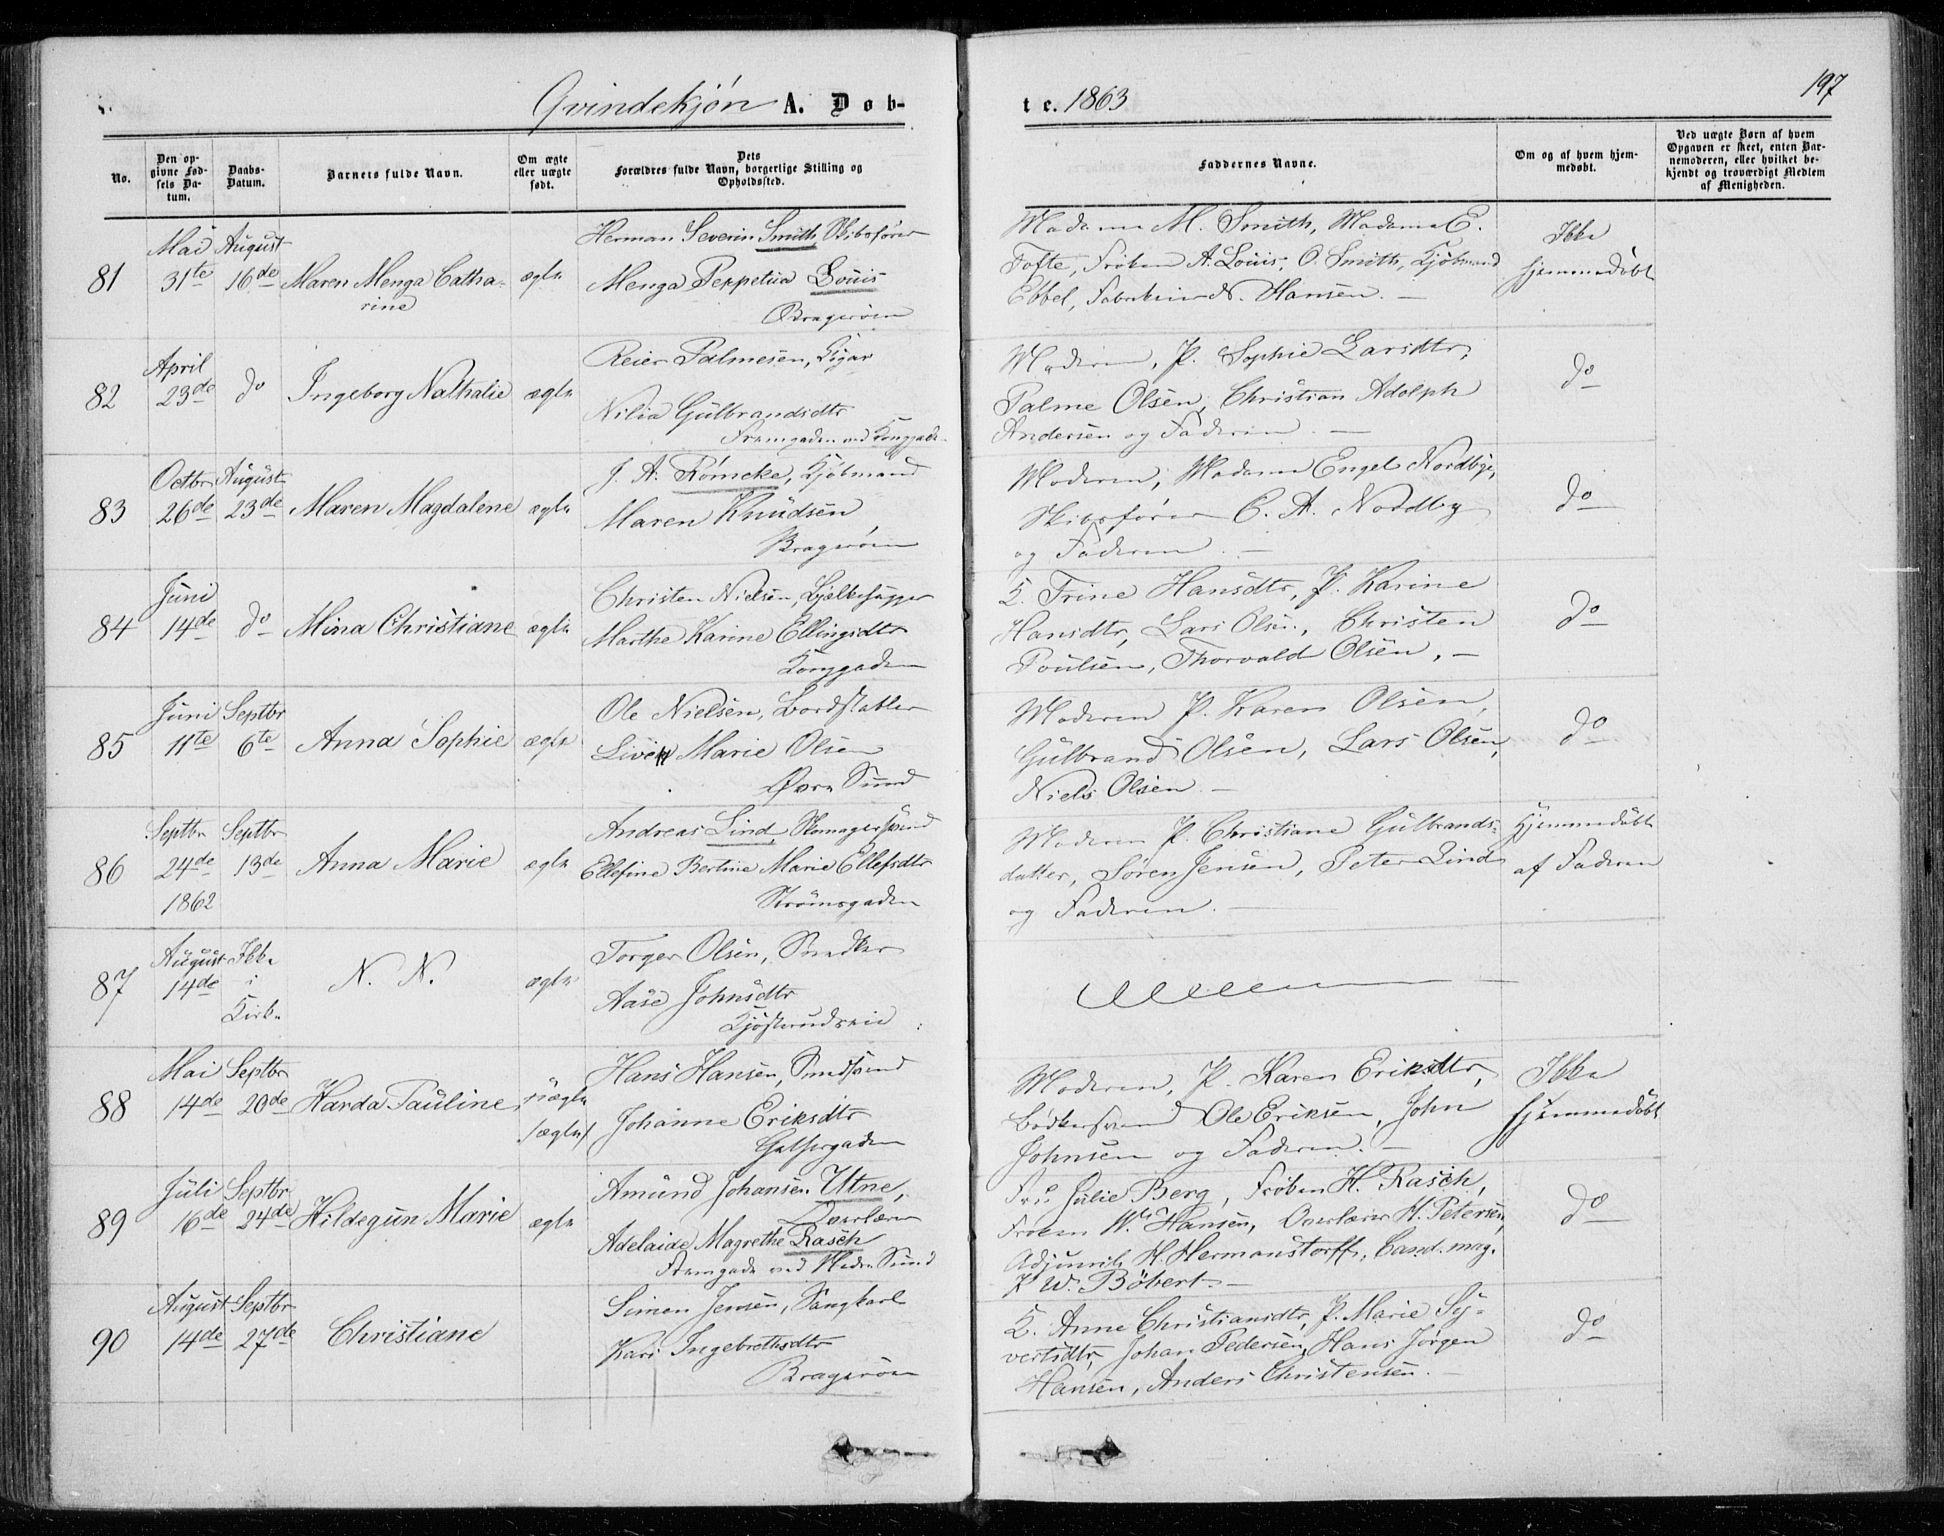 Qvindekjön A. Döb-
te. 1863
197
No.
Den op-
givne Fød-
sels Da-
tum.
Daabs-
Datum.
Barnets fulde Navn.
Om ægte
eller uægte
født.
Dets
Forældres fulde Navn, borgerlige Stilling og
Opholdssted.
Faddernes Navne.
Om og af hvem hjem-
medøbt.
Ved uægte Børn af hvem
Opgaven er skeet, enten Bar-
nemoderen, eller hvilket be-
kjendt og troværdigt Medlem
af Menigheden.
81
Mai
31te
August
16de
Maren Menga Catha-
rine
ægte
Herman Severin Smith, Skibsfører
Menga Peppetua Louis
Bragerøen
Madame M. Smith, Madame E.
Tofte, Frøken A. Louis, O. Smith, Kjöbmand
Ebbel, Fabrikeier N. Hansen. —
Ikke
hjemmedöbt
82
April
23de
do
Ingeborg Nathalie
ægte
Reier Palmesen,
Nilia Gulbrandsdtr
Fremgaden ved Konggade
Moderen, P. Sophie Larsdtr,
Palme Olsen, Christian Adolph
Andersen og Faderen. —
do
83
Octbr
26de
August
23de
Maren Magdalene
ægte
J. A. Römcke, Kjöbmand
Maren Knudsen
Bragerøen
Moderen, Madame Engel Nordbye,
Skibsfører C. A. Noddby
og Faderen. —
do
84
Juni
14de
do
Mina Christiane
ægte
Christen Nielsen, Bjelkehugger
Marthe Karine Ellingsdtr
Konggaden
K. Trine Hansdtr, P. Karine
Hansdtr, Lars Olsen, Christen
Poulsen, Thorvald Olsen, —
do
85
Juni
11te
Septbr
6te
Anna Sophie
ægte
Ole Nielsen, Bordstabler
Live Marie Olsen
Øvre Sund
Moderen P. Karen Olsen,
Gulbrand Olsen, Lars Olsen,
Niels Olsen —
do
86
Septbr
24de
1862
Septbr
13de
Anna Marie
ægte
Andreas Lind, Skomagersvend
Ellefine Bertine Marie Ellefsdtr
Strömsgaden
Moderen P. Christiane Gulbrands-
datter, Sören Jensen, Peter Lind
og Faderen. —
Hjemmedöbt
af Faderen
87
August
14de
Ikke
i
Kirke
N. N.
ægte
Torger Olsen, Snedker
Aase Johnsdtr
88
Mai
14de
Septbr
20de
Harda Pauline
uægte
/ægte/
Hans Hansen,
Johanne Eriksdtr
Moderen, P. Karen Eriksdtr,
Bödkersvend Ole Eriksen, John
Johnsen og Faderen. —
Ikke
hjemmedöbt
89
Juli
16de
Septbr
24de
Hildegun Marie
ægte
Amund Johansen Utne,
Overlærer
Adelaide Magrethe Rasch
Fremgade ved Nedre Sund
Fru Julie Berg, Frøken H. Rasch,
Frøken W. Hansen, Overlærer H. Petersen,
Adjunct H. Hermanstorff, Cand. mag.
K W. Böbert. —
do
90
August
14de
Septbr
27de
Christiane
Simen Jensen, Sangkarl
Kari Ingebrethsdtr
Bragerøen
K. Anne Christiansdtr, P. Marie Sy-
vertsdtr, Johan Pedersen, Hans Jørgen
Hansen, Anders Christensen. —
do